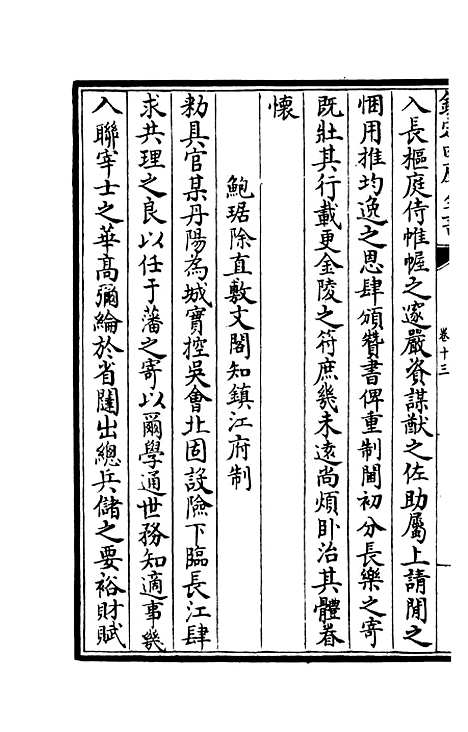 欽定四庫全書
卷十三
入長樞庭侍帷幄之邃嚴資謀猷之佐助屬上請閒之
悃用推均逸之恩肆頒贊書俾重制閫初分長樂之寄
既壯其行載更金陵之符庶幾未逺尚煩卧治其體眷
懷
鮑琚除直敷文閣知鎮江府制
勅具官某丹陽為城實控吳會北固設險下臨長江肆
求共理之良以任于藩之寄以爾學通世務知適事幾
入聯宰士之華高彌綸於省闥出總兵儲之要裕財賦